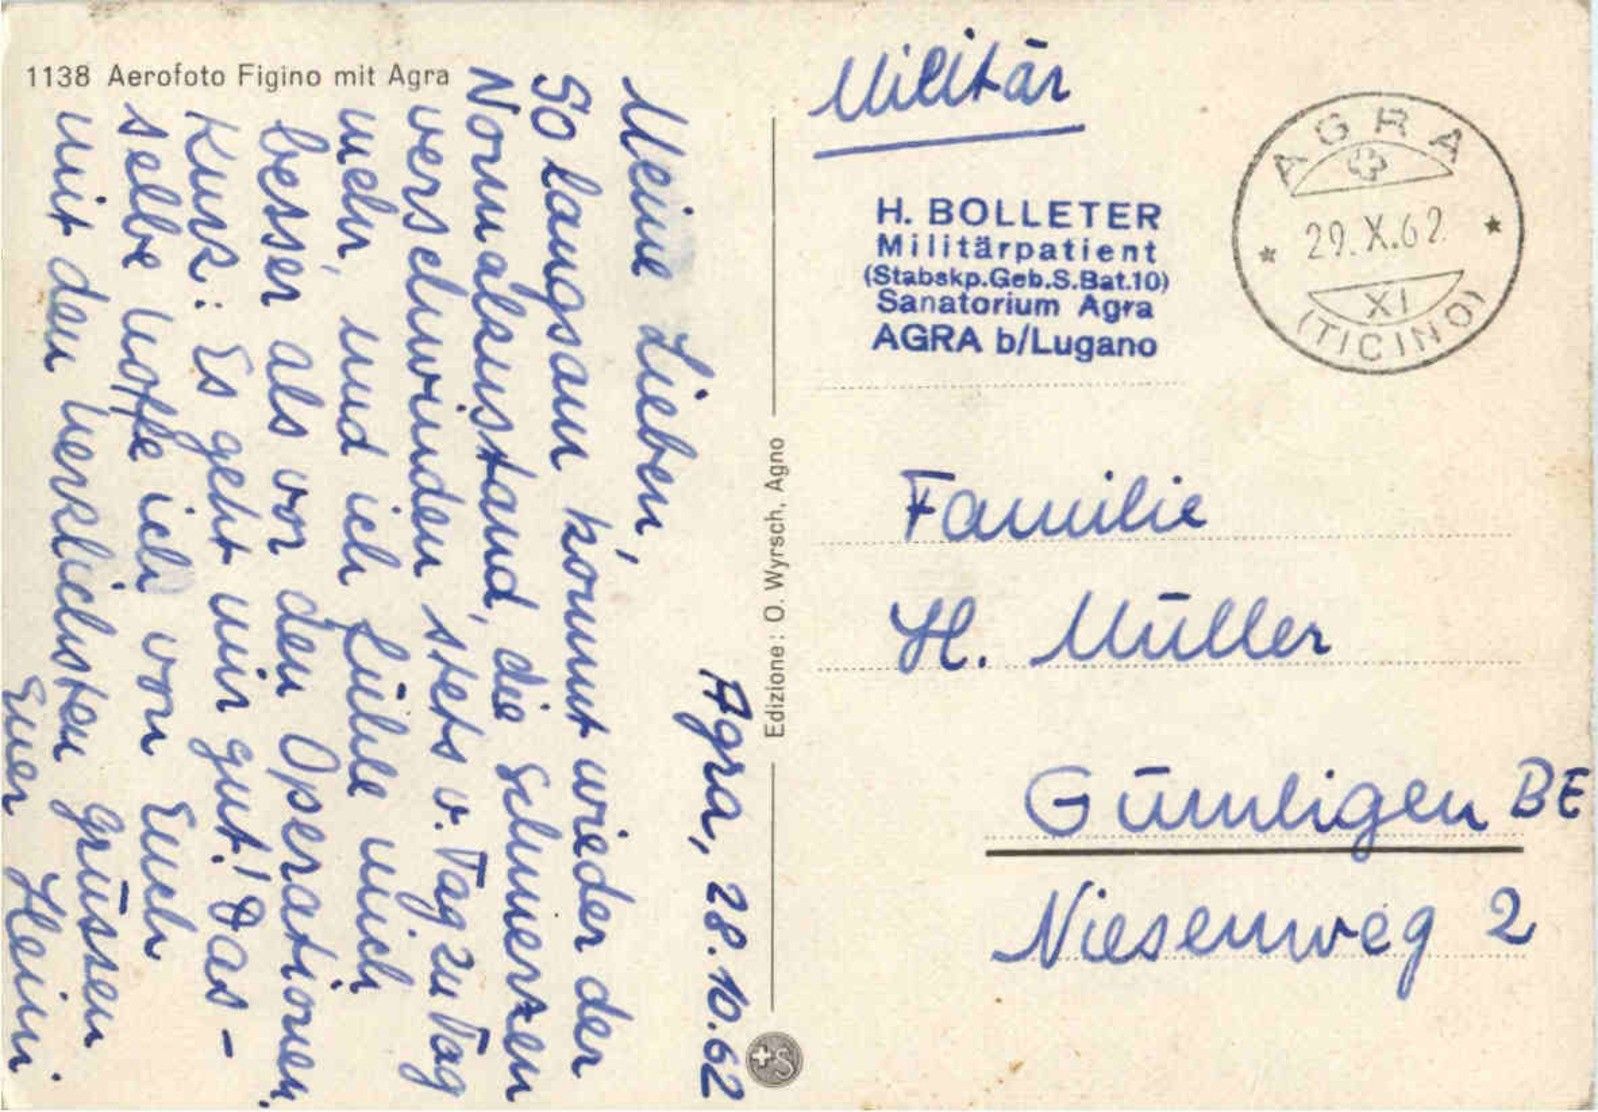 1138 Aerofoto Figino mit Agra
Agra, 28.10.62
Meine Lieben,
So langsam kommt wieder der
Normalzustand, die Schmerzen
verschwinden stets v. Tag zu Tag
mehr, und ich fühle mich
besser als vor den Operationen.
Kurz: Es geht mir gut! Das-
selbe hoffe ich von Euch
mit den herzlichsten Grüssen
Euer Heini.
Edizione: O. Wyrsch, Agno
Militär
H. BOLLETER
Militärpatient
(Stabskp.Geb.S.Bat.10)
Sanatorium Agra
AGRA b/Lugano
AGRA
29.X.62
XI
(TICINO)
Familie
H. Müller
Gümligen BE
Niesenweg 2
S